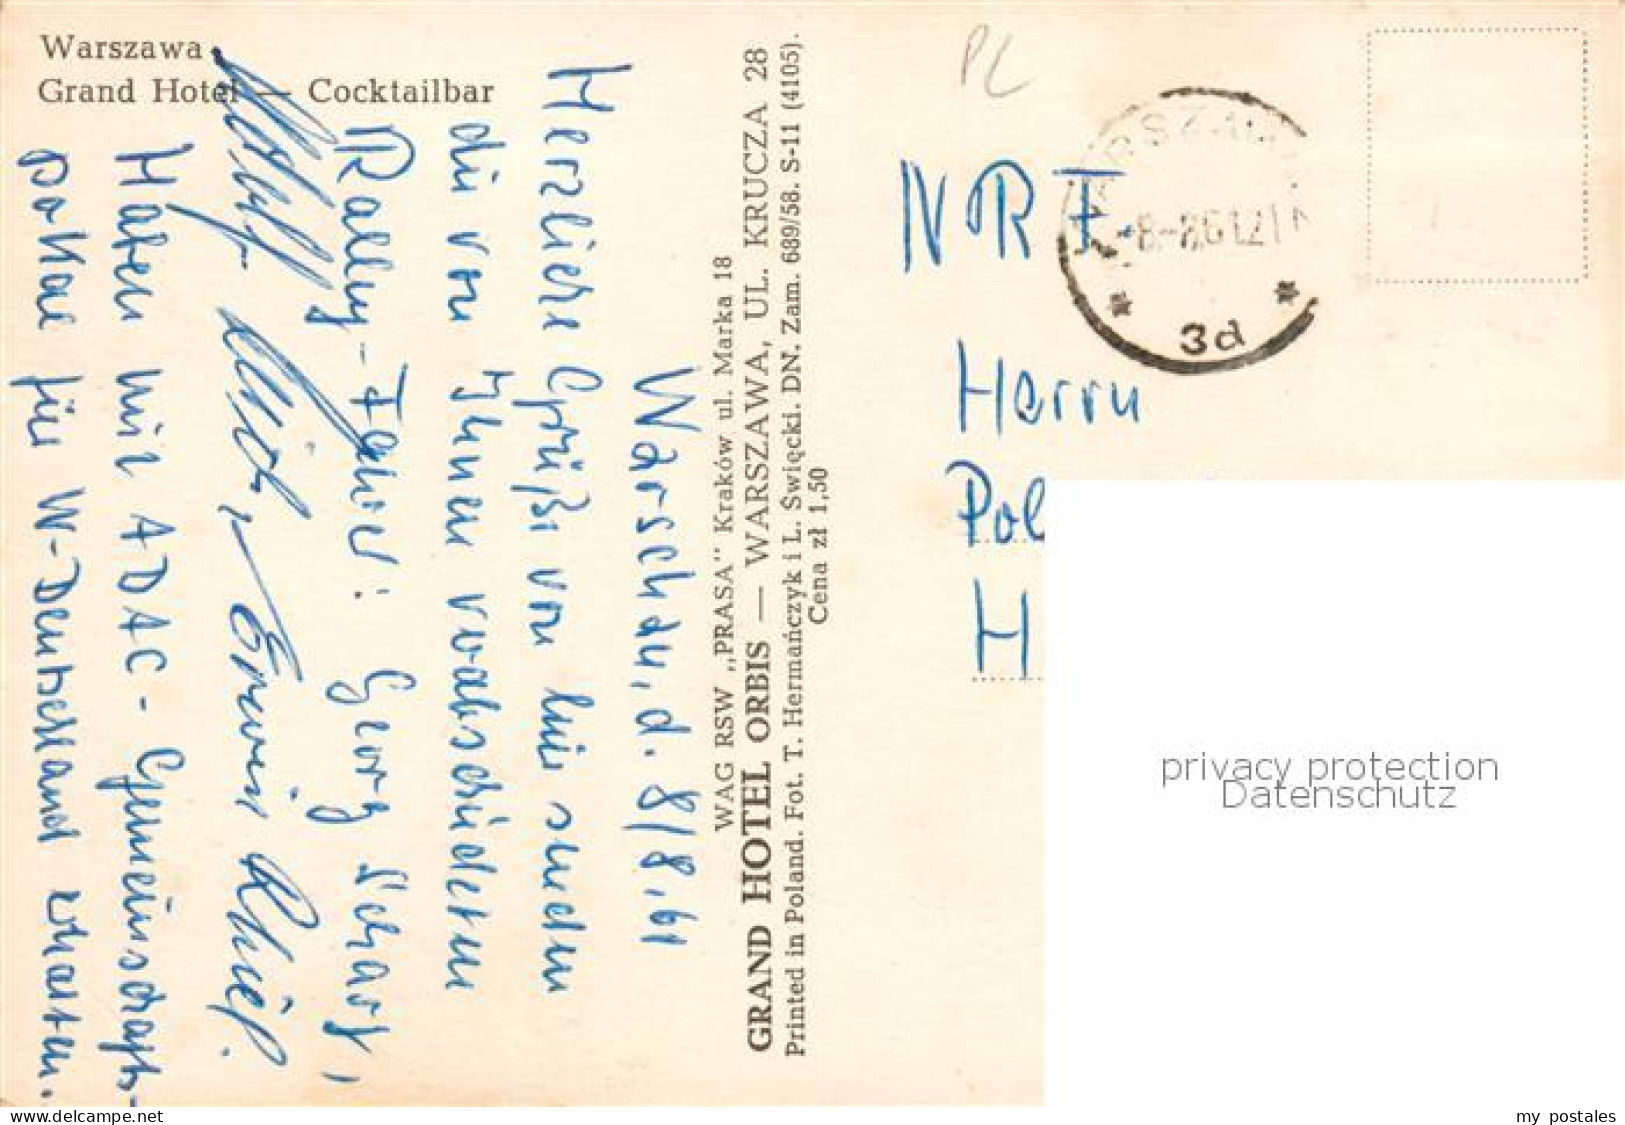 Warszawa
Grand Hotel — Cocktailbar
Warschau, d. 8/8.61
Herzliche Grüße von
die von Ihnen verabschiedeten
Rallye-Fahrer: Georg Scharf,
Erwin
Haben mit ADAC-Gemeinschafts-
pokal für W-Deutschland erhalten.
WAG RSW „PRASA" Kraków ul. Marka 18
GRAND HOTEL ORBIS — WARSZAWA, UL. KRUCZA 28
Printed in Poland. Fot. T. Hermańczyk i L. Święcki. DN. Zam. 689/58. S-11 (4105).
Cena zł 1,50
PL
NRF.
3d
Herrn
Pol
H
privacy protection
Datenschutz
www.delcampe.net
my_postales